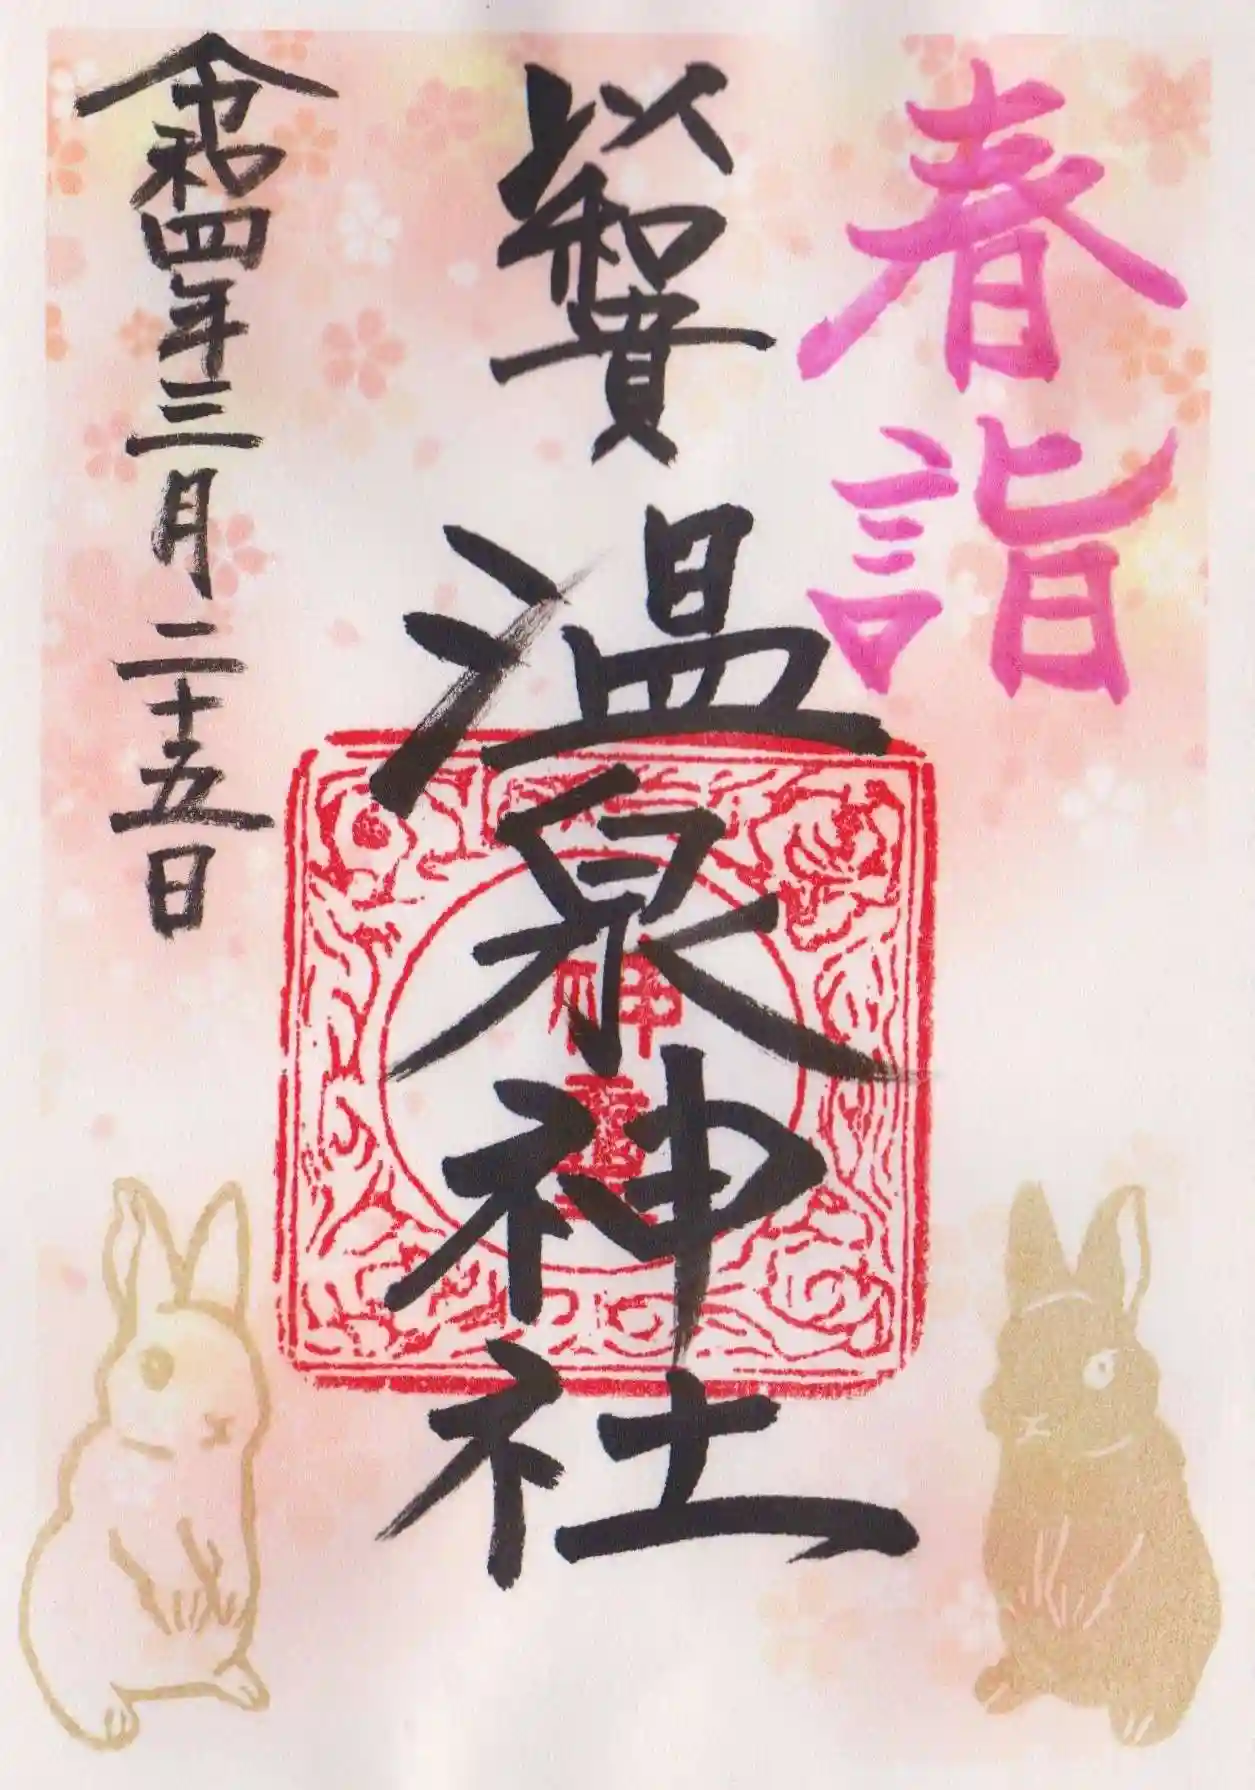 春詣
以和貴
温泉神社
神璽
令和四年三月二十五日